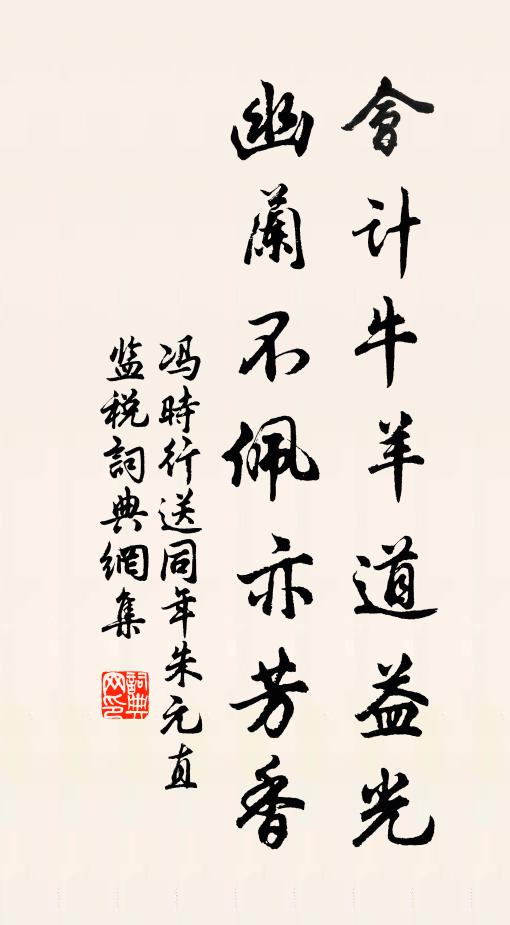 會計牛羊道益光
幽蘭不佩亦芳香
冯時行送同年朱元直
监税詞典網集
詞典网印